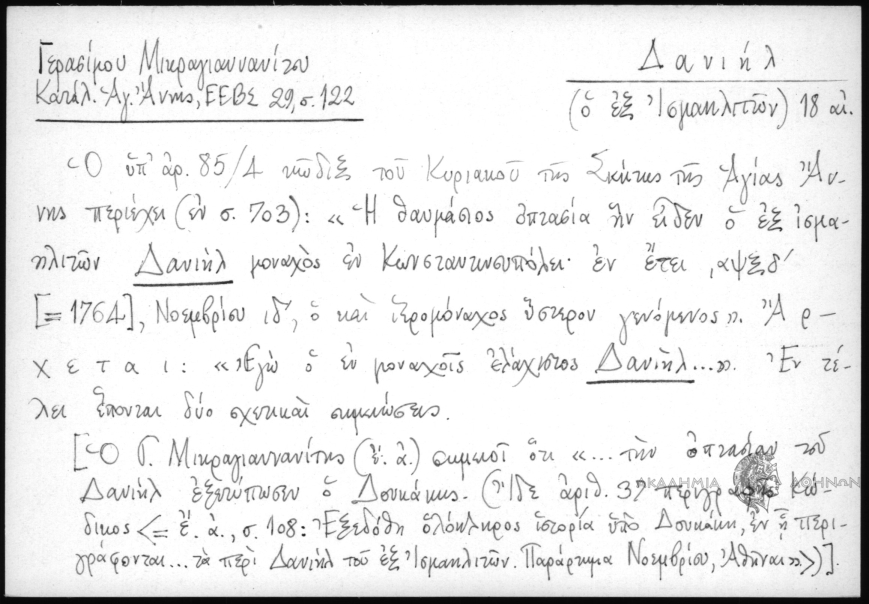 Γερασίμου Μικραγιαννανίτου
Κατάλ. Ἁγ. Ἄννης, ΕΕΒΣ 29, σ. 122
Δανιήλ
(ὁ ἐξ Ἰσμαηλιτῶν) 18 αἰ.
Ὁ ὑπ' ἀρ. 85/4 κῶδιξ τοῦ Κυριακοῦ τῆς Σκήτης τῆς Ἁγίας Ἄν-
νης περιέχει (ἐν σ. 703): «Ἡ θαυμάσιος ὀπτασία ἣν εἶδεν ὁ ἐξ ἰσμα-
ηλιτῶν Δανιὴλ μοναχὸς ἐν Κωνσταντινουπόλει· ἐν ἔτει ͵αψξδ´
[= 1764], Νοεμβρίου ιδ´, ὁ καὶ ἱερομόναχος ὕστερον γενόμενος». Ἄρ-
χεται: «Ἐγὼ ὁ ἐν μοναχοῖς ἐλάχιστος Δανιὴλ...». Ἐν τέ-
λει ἕπονται δύο σχετικαὶ σημειώσεις.
[Ὁ Γ. Μικραγιαννανίτης (ἔ. ἀ.) σημειοῖ ὅτι «... τὴν ὀπτασίαν τοῦ
Δανιὴλ ἐξετύπωσεν ὁ Δουκάκης. (Ἴδε ἀριθ. 37 περιγραφῆς Κώ-
δικος <= ἔ. ἀ., σ. 108: Ἐξεδόθη ὁλόκληρος ἱστορία ὑπὸ Δουκάκη, ἐν ᾗ περι-
γράφονται... τὰ περὶ Δανιὴλ τοῦ ἐξ Ἰσμαηλιτῶν. Παράρτημα Νοεμβρίου, Ἀθῆναι».>)].
ΑΚΑΔΗΜΙΑ ΑΘΗΝΩΝ